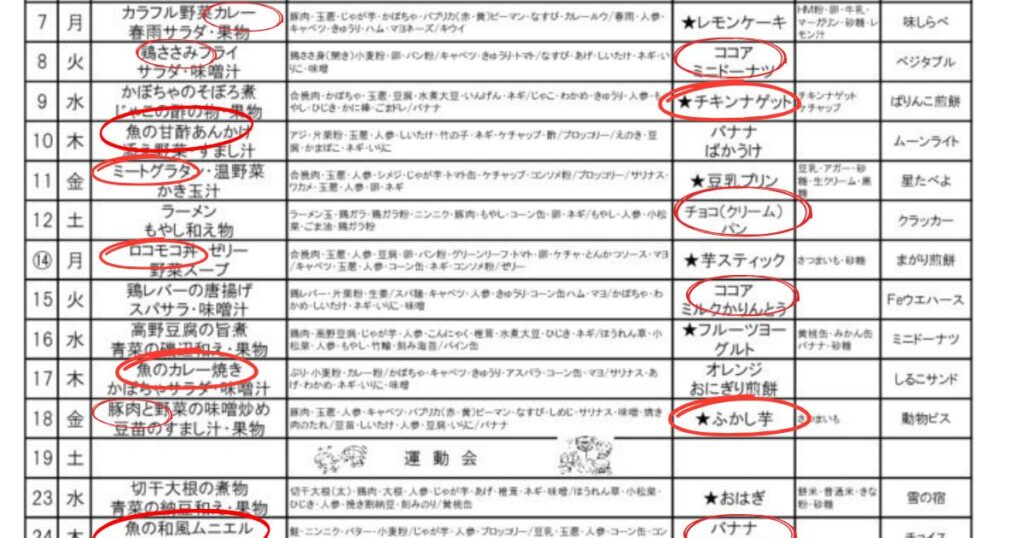 7 月 カラフル野菜カレー
春雨サラダ・果物
豚肉・玉葱・じゃが芋・かぼちゃ・パプリカ(赤・黄)ピーマン・なすび・カレールウ/春雨・人参・
キャベツ・きゅうり・ハム・マヨネーズ/キウイ
★レモンケーキ
HM粉・卵・牛乳・
マーガリン・砂糖・レ
モン汁
味しらべ
8 火 鶏ささみフライ
サラダ・味噌汁
鶏ささ身(開き)小麦粉・卵・パン粉/キャベツ・きゅうり・トマト/なすび・あげ・しいたけ・ネギ・い
りこ・味噌
ココア
ミニドーナツ
ベジタブル
9 水 かぼちゃのそぼろ煮
じゃこの酢の物・果物
合挽肉・かぼちゃ・玉葱・水煮大豆・いんげん・ネギ/じゃこ・わかめ・きゅうり・人参・も
やし・ひじき・かに棒・ごまドレ/バナナ
★チキンナゲット
チキンナゲット
ケチャップ
ぱりんこ煎餅
10 木 魚の甘酢あんかけ
添え野菜・すまし汁
アジ・片栗粉・玉葱・人参・しいたけ・竹の子・ネギ・ケチャップ・酢/ブロッコリー/えのき・豆
腐・かまぼこ・ネギ・いりこ
バナナ
ばかうけ
ムーンライト
11 金 ミートグラタン・温野菜
かき玉汁
合挽肉・玉葱・人参・シメジ・じゃが芋・トマト缶・ケチャップ・コンソメ粉/ブロッコリー/サリナス・
ワカメ・玉葱・人参・卵・ネギ
★豆乳プリン
豆乳・アガー・砂
糖・生クリーム・黒
糖
星たべよ
12 土 ラーメン
もやし和え物
ラーメン玉・鶏ガラ・鶏ガラ粉・ニンニク・豚肉・もやし・コーン缶・卵・ネギ/もやし・人参・小松
菜・ごま油・鶏ガラ粉
チョコ(クリーム)
パン
クラッカー
⑭ 月 ロコモコ丼 ゼリー
野菜スープ
合挽肉・玉葱・人参・豆腐・卵・パン粉・グリーンリーフ・トマト・卵・ケチャ・とんかつソース・マヨ
/キャベツ・玉葱・人参・コーン缶・ネギ・コンソメ粉/ゼリー
★芋スティック
さつまいも・砂糖
まがり煎餅
15 火 鶏レバーの唐揚げ
スパサラ・味噌汁
鶏レバー・片栗粉・生姜/スパ麺・キャベツ・人参・きゅうり・コーン缶ハム・マヨ/かぼちゃ・わ
かめ・しいたけ・ネギ・いりこ・味噌
ココア
ミルクかりんとう
Feウエハース
16 水 高野豆腐の旨煮
青菜の磯辺和え・果物
鶏肉・高野豆腐・じゃが芋・人参・こんにゃく・椎茸・水煮大豆・ひじき・ネギ/ほうれん草・小
松菜・人参・もやし・竹輪・刻み海苔/パイン缶
★フルーツヨー
グルト
黄桃缶・みかん缶
バナナ・砂糖
ミニドーナツ
17 木 魚のカレー焼き
かぼちゃサラダ・味噌汁
ぶり・小麦粉・カレー粉/かぼちゃ・キャベツ・きゅうり・アスパラ・コーン缶・マヨ/サリナス・あ
げ・わかめ・ネギ・いりこ・味噌
オレンジ
おにぎり煎餅
しるこサンド
18 金 豚肉と野菜の味噌炒め
豆苗のすまし汁・果物
豚肉・玉葱・人参・キャベツ・パプリカ(赤・黄)ピーマン・なすび・しめじ・サリナス・味噌・焼き
肉のたれ/豆苗・しいたけ・人参・豆腐・いりこ/バナナ
★ふかし芋
さつまいも
動物ビス
19 土 運動会
23 水 切干大根の煮物
青菜の納豆和え・果物
切干大根(太)・鶏肉・大根・人参・じゃが芋・あげ・椎茸・ネギ・味噌/ほうれん草・小松菜・
ひじき・人参・挽き割納豆・刻みのり/黄桃缶
★おはぎ
餅米・普通米・きな
粉・砂糖
雪の宿
24 木 魚の和風ムニエル
鮭・ニンニク・バター・小麦粉/じゃが芋・人参・ブロッコリー/豆乳・玉葱・人参・コーン缶・コン
バナナ
チョイス